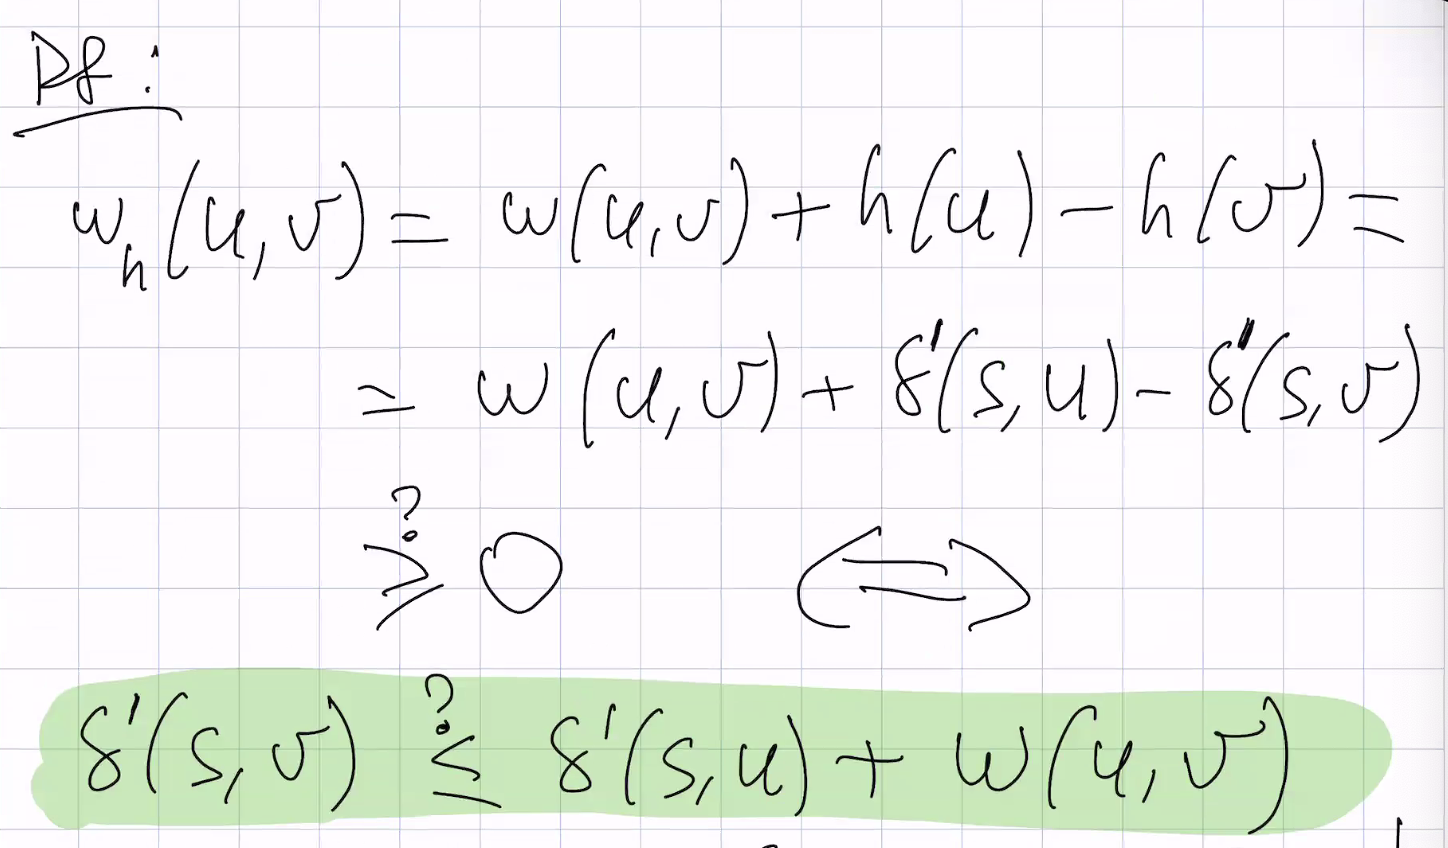 Pf:
w_h(u,v) = w(u,v) + h(u) - h(v) =
= w(u,v) + δ'(s,u) - δ'(s,v)
?
≥ 0 ⟺
?
δ'(s,v) ≤ δ'(s,u) + w(u,v)